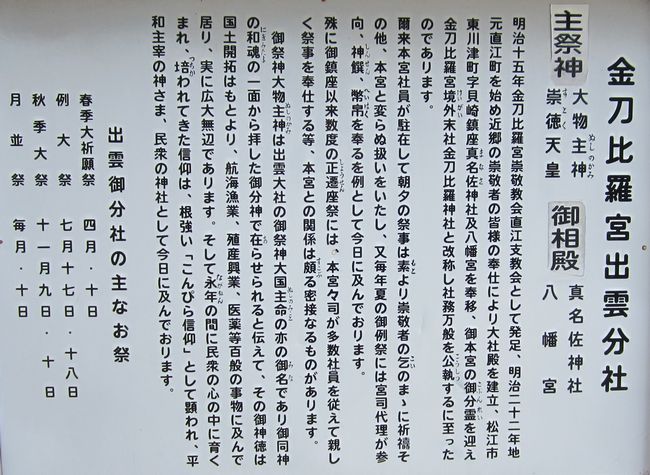 金刀比羅宮出雲分社
主祭神 大物主神 崇徳天皇
御相殿 真名佐神社 八幡宮
明治十五年金刀比羅宮崇敬教会直江支教会として発足、明治二十二年地
元直江町を始め近郷の崇敬者の皆様の奉仕により大社殿を建立、松江市
東川津町字貝崎鎮座真名佐神社及八幡宮を奉移、御本宮の御分霊を迎え
金刀比羅宮境外末社金刀比羅神社と改称し社務万般を公執するに至った
のであります。
爾来本宮社員が駐在して朝夕の祭事は素より崇敬者の乞のまゝに祈禱そ
の他、本宮と変らぬ扱いをいたし、又毎年夏の御例祭には宮司代理が参
向、神饌、幣帛を奉るを例として今日に及んでおります。
殊に御鎮座以来数度の正遷座祭には、本宮々司が多数社員を従えて親し
く祭事を奉仕する等、本宮との関係は頗る密接なものがあります。
御祭神大物主神は出雲大社の御祭神大国主命の亦の御名であり御同神
の和魂の一面から拝した御分神で在らせられると伝えて、その御神徳は
国土開拓はもとより、航海漁業、殖産興業、医薬等百般の事物に及んで
居り、実に広大無辺であります。そして永年の間に民衆の心の中に育く
まれ、培われてきた信仰は、根強い「こんぴら信仰」として顕われ、平
和主宰の神さま、民衆の神社として今日に及んでおります。
出雲御分社の主なお祭
春季大祈願祭 四月・十日
例大祭 七月十七日・十八日
秋季大祭 十一月九日・十日
月並祭 毎月・十日